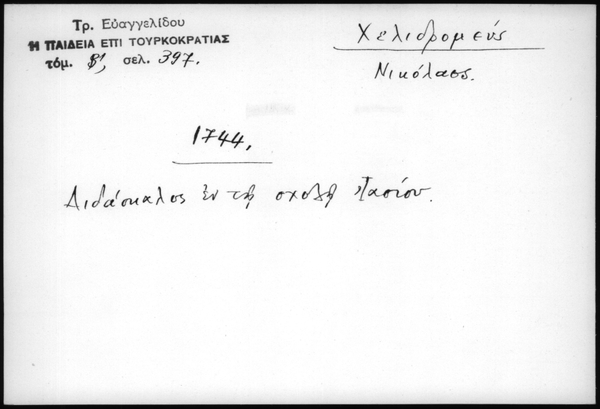 Τρ. Εὐαγγελίδου
Η ΠΑΙΔΕΙΑ ΕΠΙ ΤΟΥΡΚΟΚΡΑΤΙΑΣ
τόμ. Β', σελ. 397.
Χελιδρομεύς
Νικόλαος.
1744.
Διδάσκαλος ἐν τῇ σχολῇ Ἰασίου.